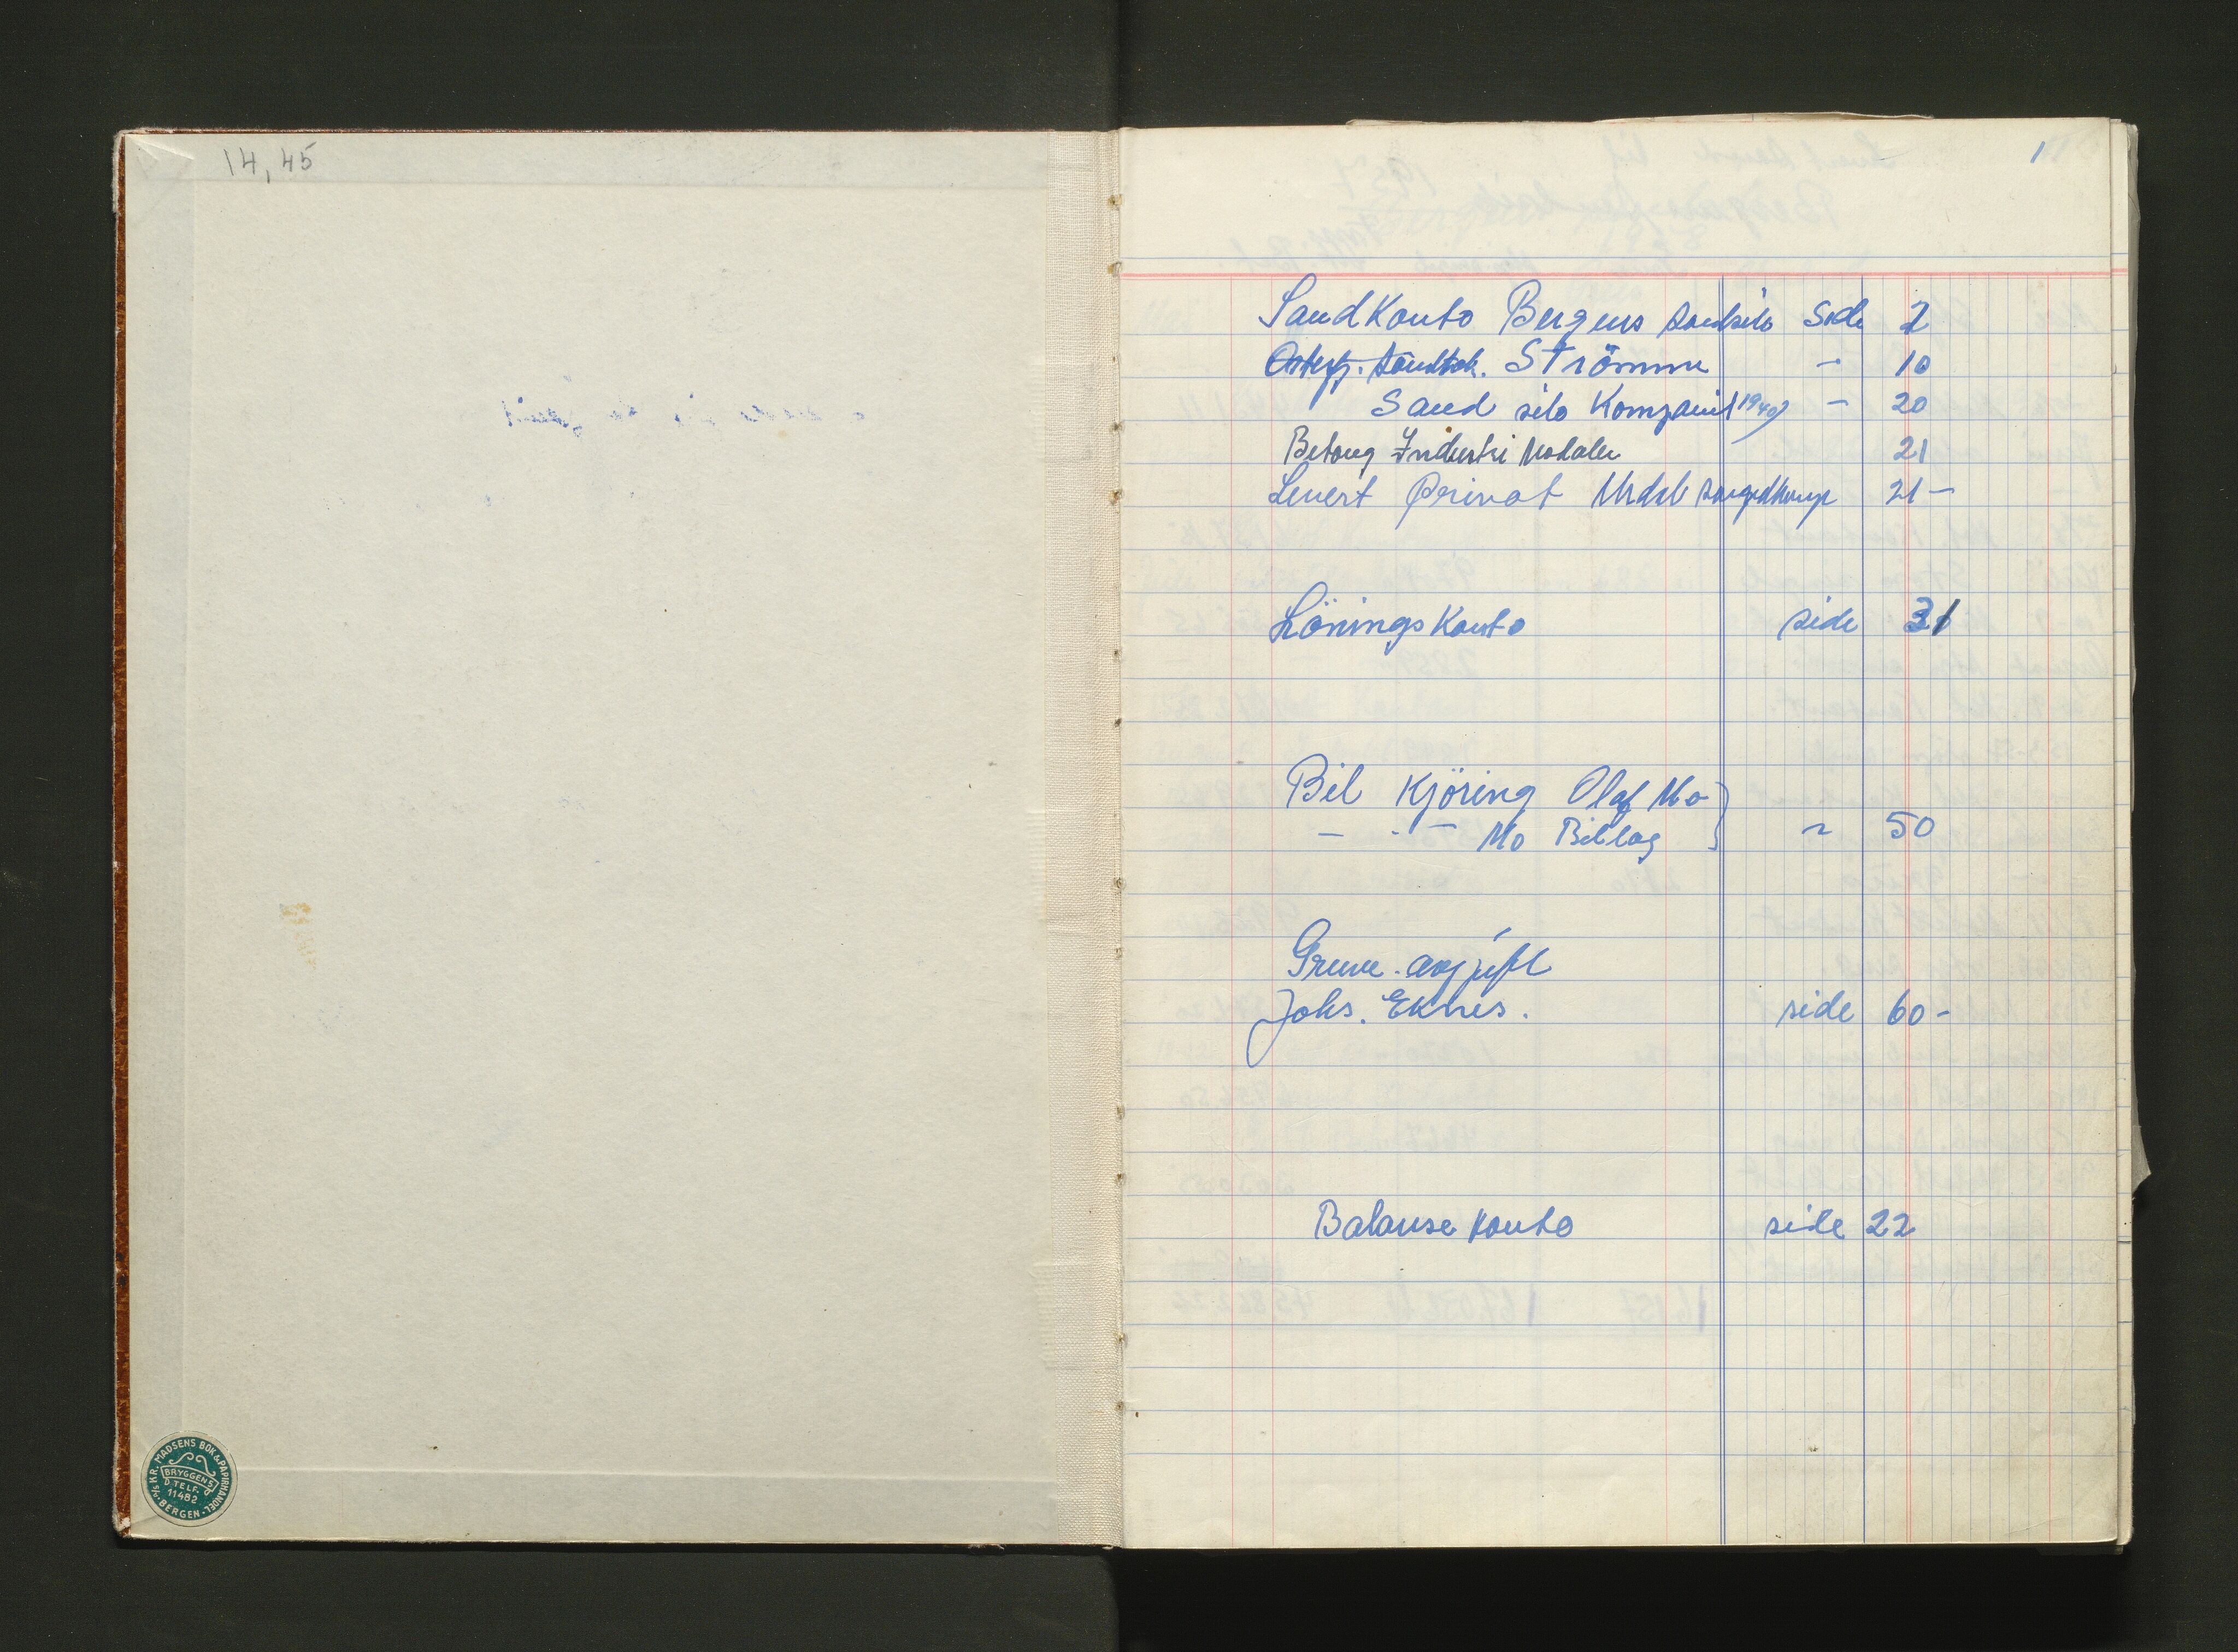 14,45
A/S KR. MADSENS BOK & PAPIRHANDEL
BRYGGEN 5
TELF.
11482
BERGEN
1
Sand Konto Bergens sandsilo Side 2
Strömme - 10
Sand silo Kompanit 1940) - 20
Betong Industri Modalen 21
Levert Privat 21 -
Lönings Konto side 31
Bil Kjöring Olaf Mo
- - - Mo Billag ~ 50
Grunn-avgift
Johs. Eknes. side 60-
Balanse Konto side 22